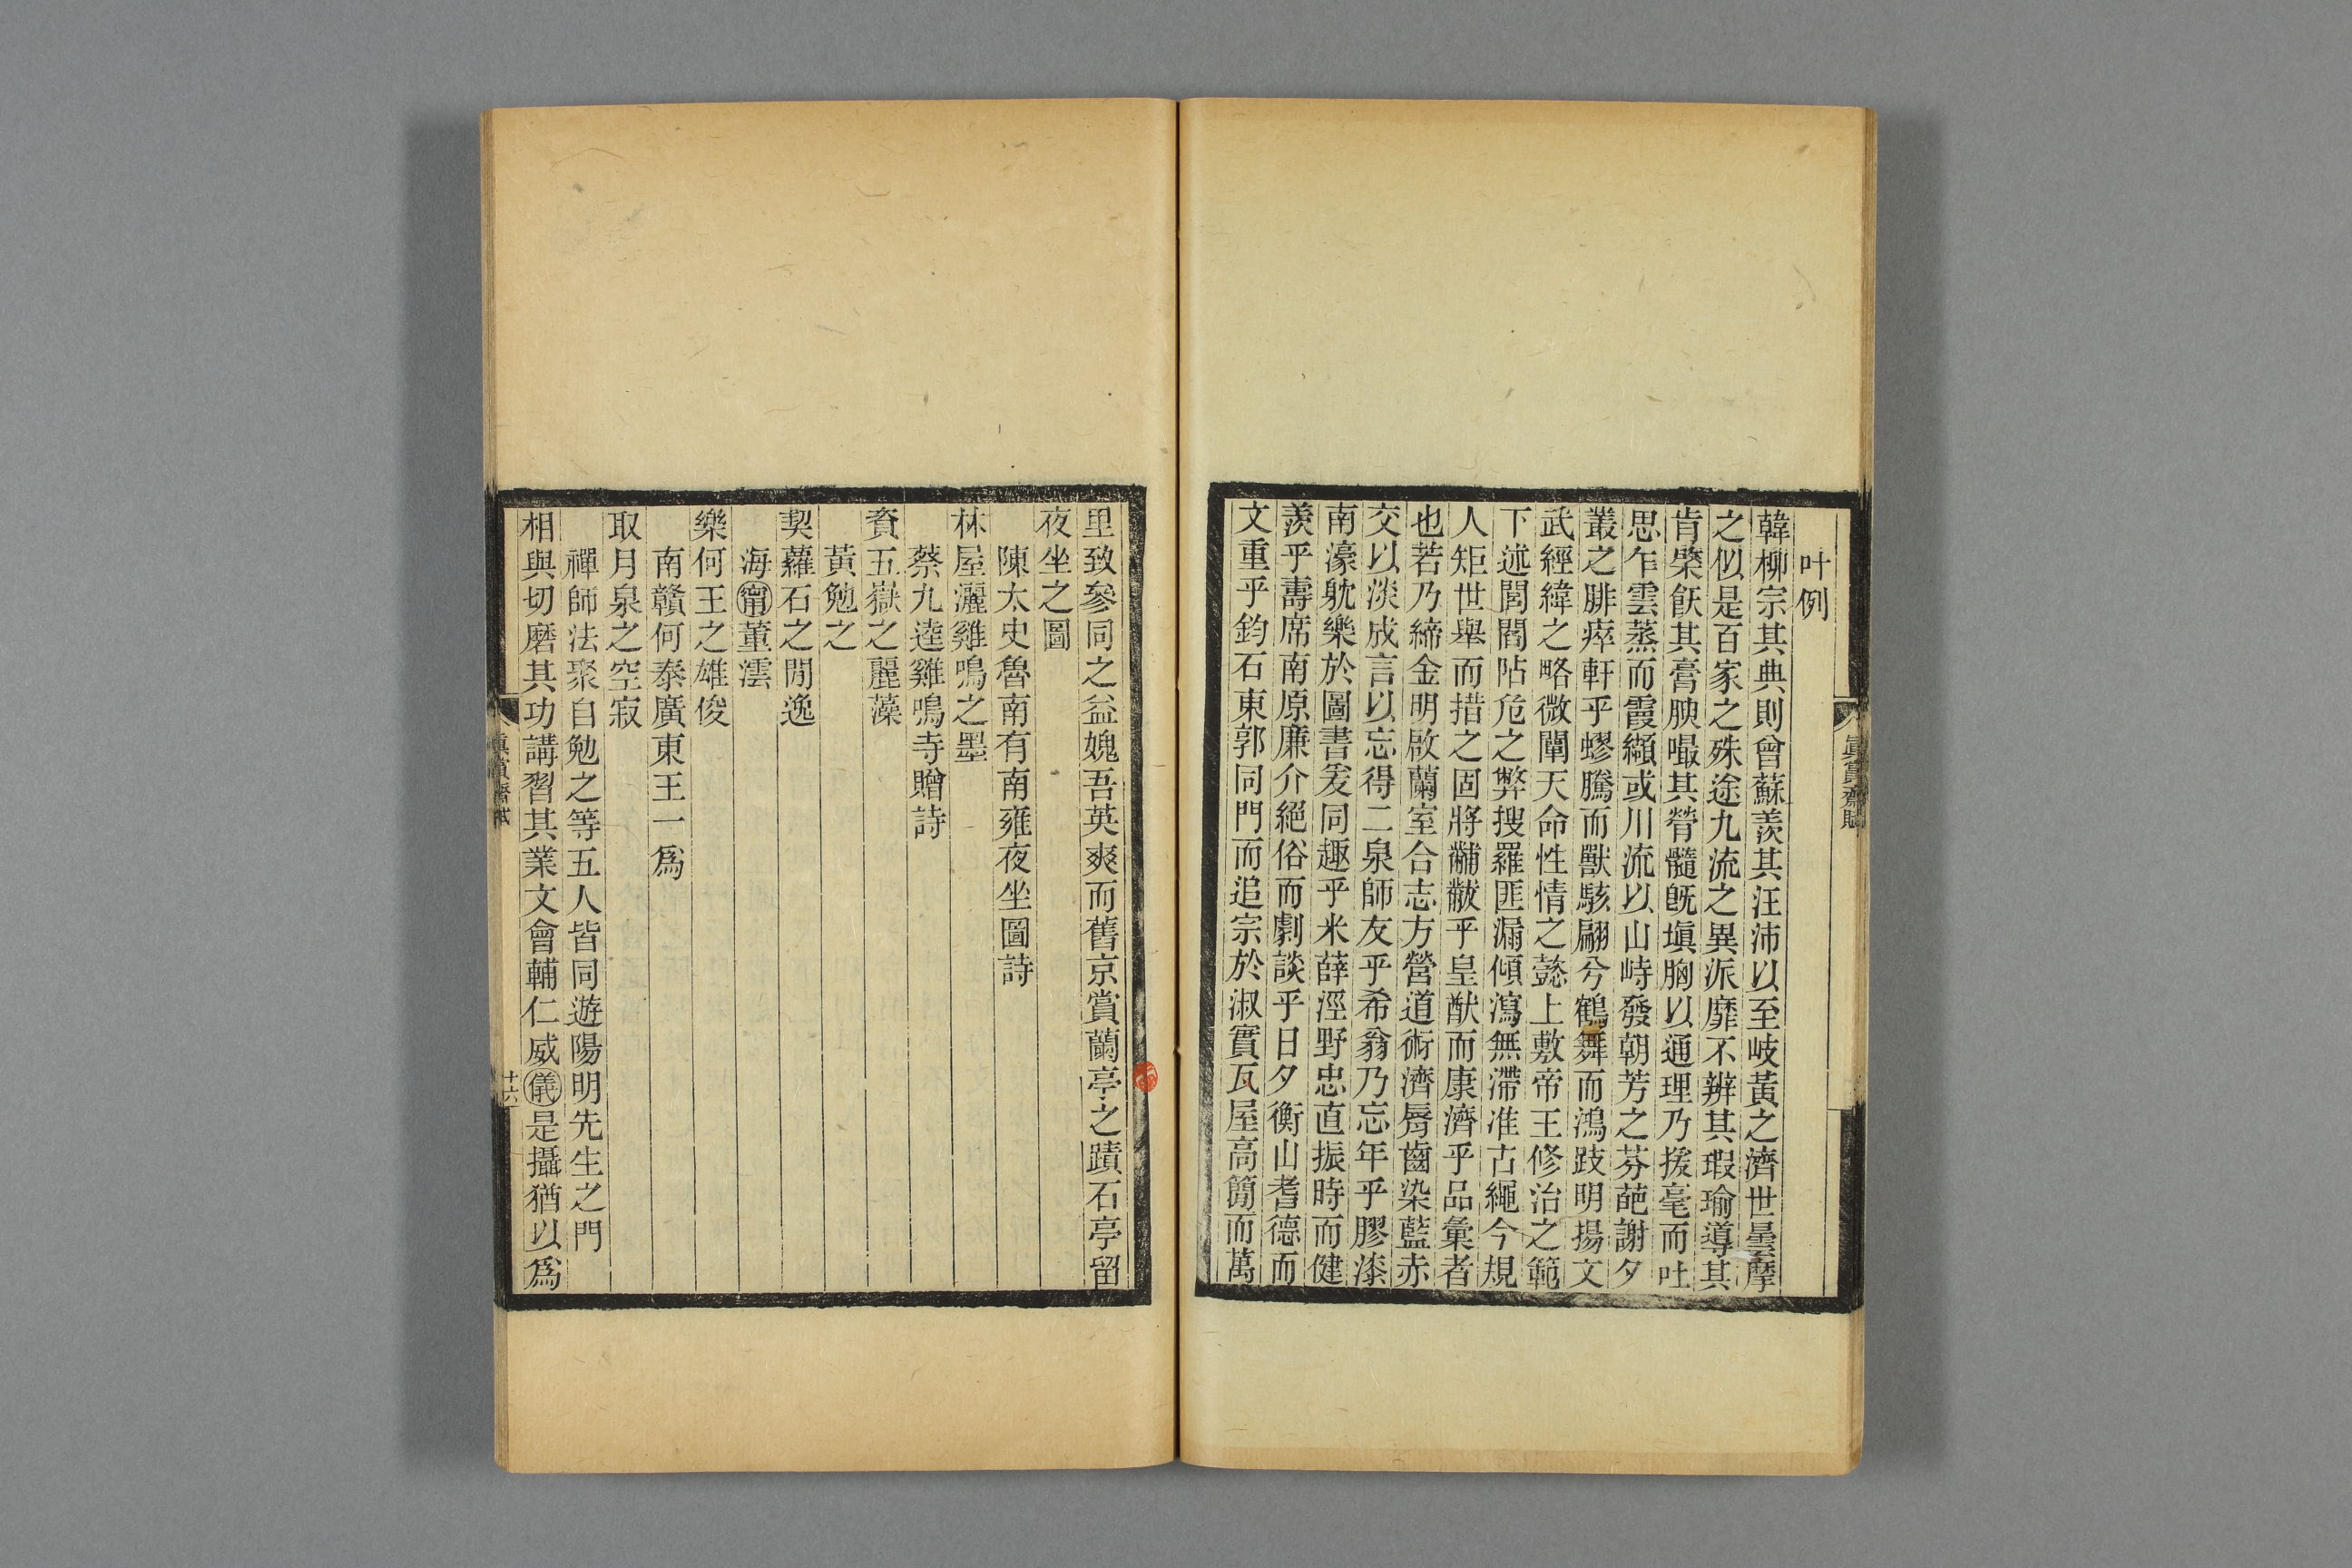 眞賞齋賦
叶例
韓柳宗其典則曾蘇羨其汪沛以至岐黃之濟世星摩
之似是百家之殊途九流之異派靡不辨其瑕瑜導其
肯綮飫其膏腴嘬其膋髓旣塡胸以通理乃援毫而吐
思乍雲蒸而霞纈或川流以山峙發朝芳之芬葩謝夕
叢之腓瘁軒乎蟉騰而獸駭翩兮鶴舞而鴻跂明揚文
武經緯之略微闡天命性情之懿上敷帝王修治之範
下述閭閻阽危之弊搜羅匪漏傾瀉無滯准古繩今規
人矩世舉而措之固將黼黻乎皇猷而康濟乎品彙者
也若乃締金明啟蘭室合志方營道術濟脣齒染藍赤
交以淡成言以忘得二泉師友乎希翁乃忘年乎膠漆
南濠躭樂於圖書爰同趣乎米薛涇野忠直振時而健
羨乎壽席南原廉介絕俗而劇談乎日夕衡山耆德而
文重乎鈞石東郭同門而追宗於淑實瓦屋高簡而萬
里致參同之益媿吾英爽而舊京賞蘭亭之蹟石亭留
夜坐之圖
陳太史魯南有南雍夜坐圖詩
林屋灑雞鳴之墨
蔡九逵雞鳴寺贈詩
袞五嶽之麗藻
黃勉之
契蘿石之閒逸
海甯董澐
樂何王之雄俊
南贛何泰廣東王一爲
取月泉之空寂
禪師法聚自勉之等五人皆同遊陽明先生之門
相與切磨其功講習其業文會輔仁威儀是攝猶以爲
眞賞齋賦
十六